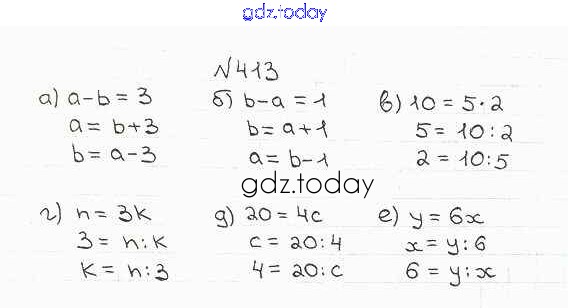 gdz.today
№413
а) a-b = 3 б) b-a = 1 в) 10 = 5·2
a = b+3 b = a+1 5 = 10:2
b = a-3 a = b-1 2 = 10:5
gdz.today
г) n = 3k д) 20 = 4c е) y = 6x
3 = n:k c = 20:4 x = y:6
k = n:3 4 = 20:c 6 = y:x